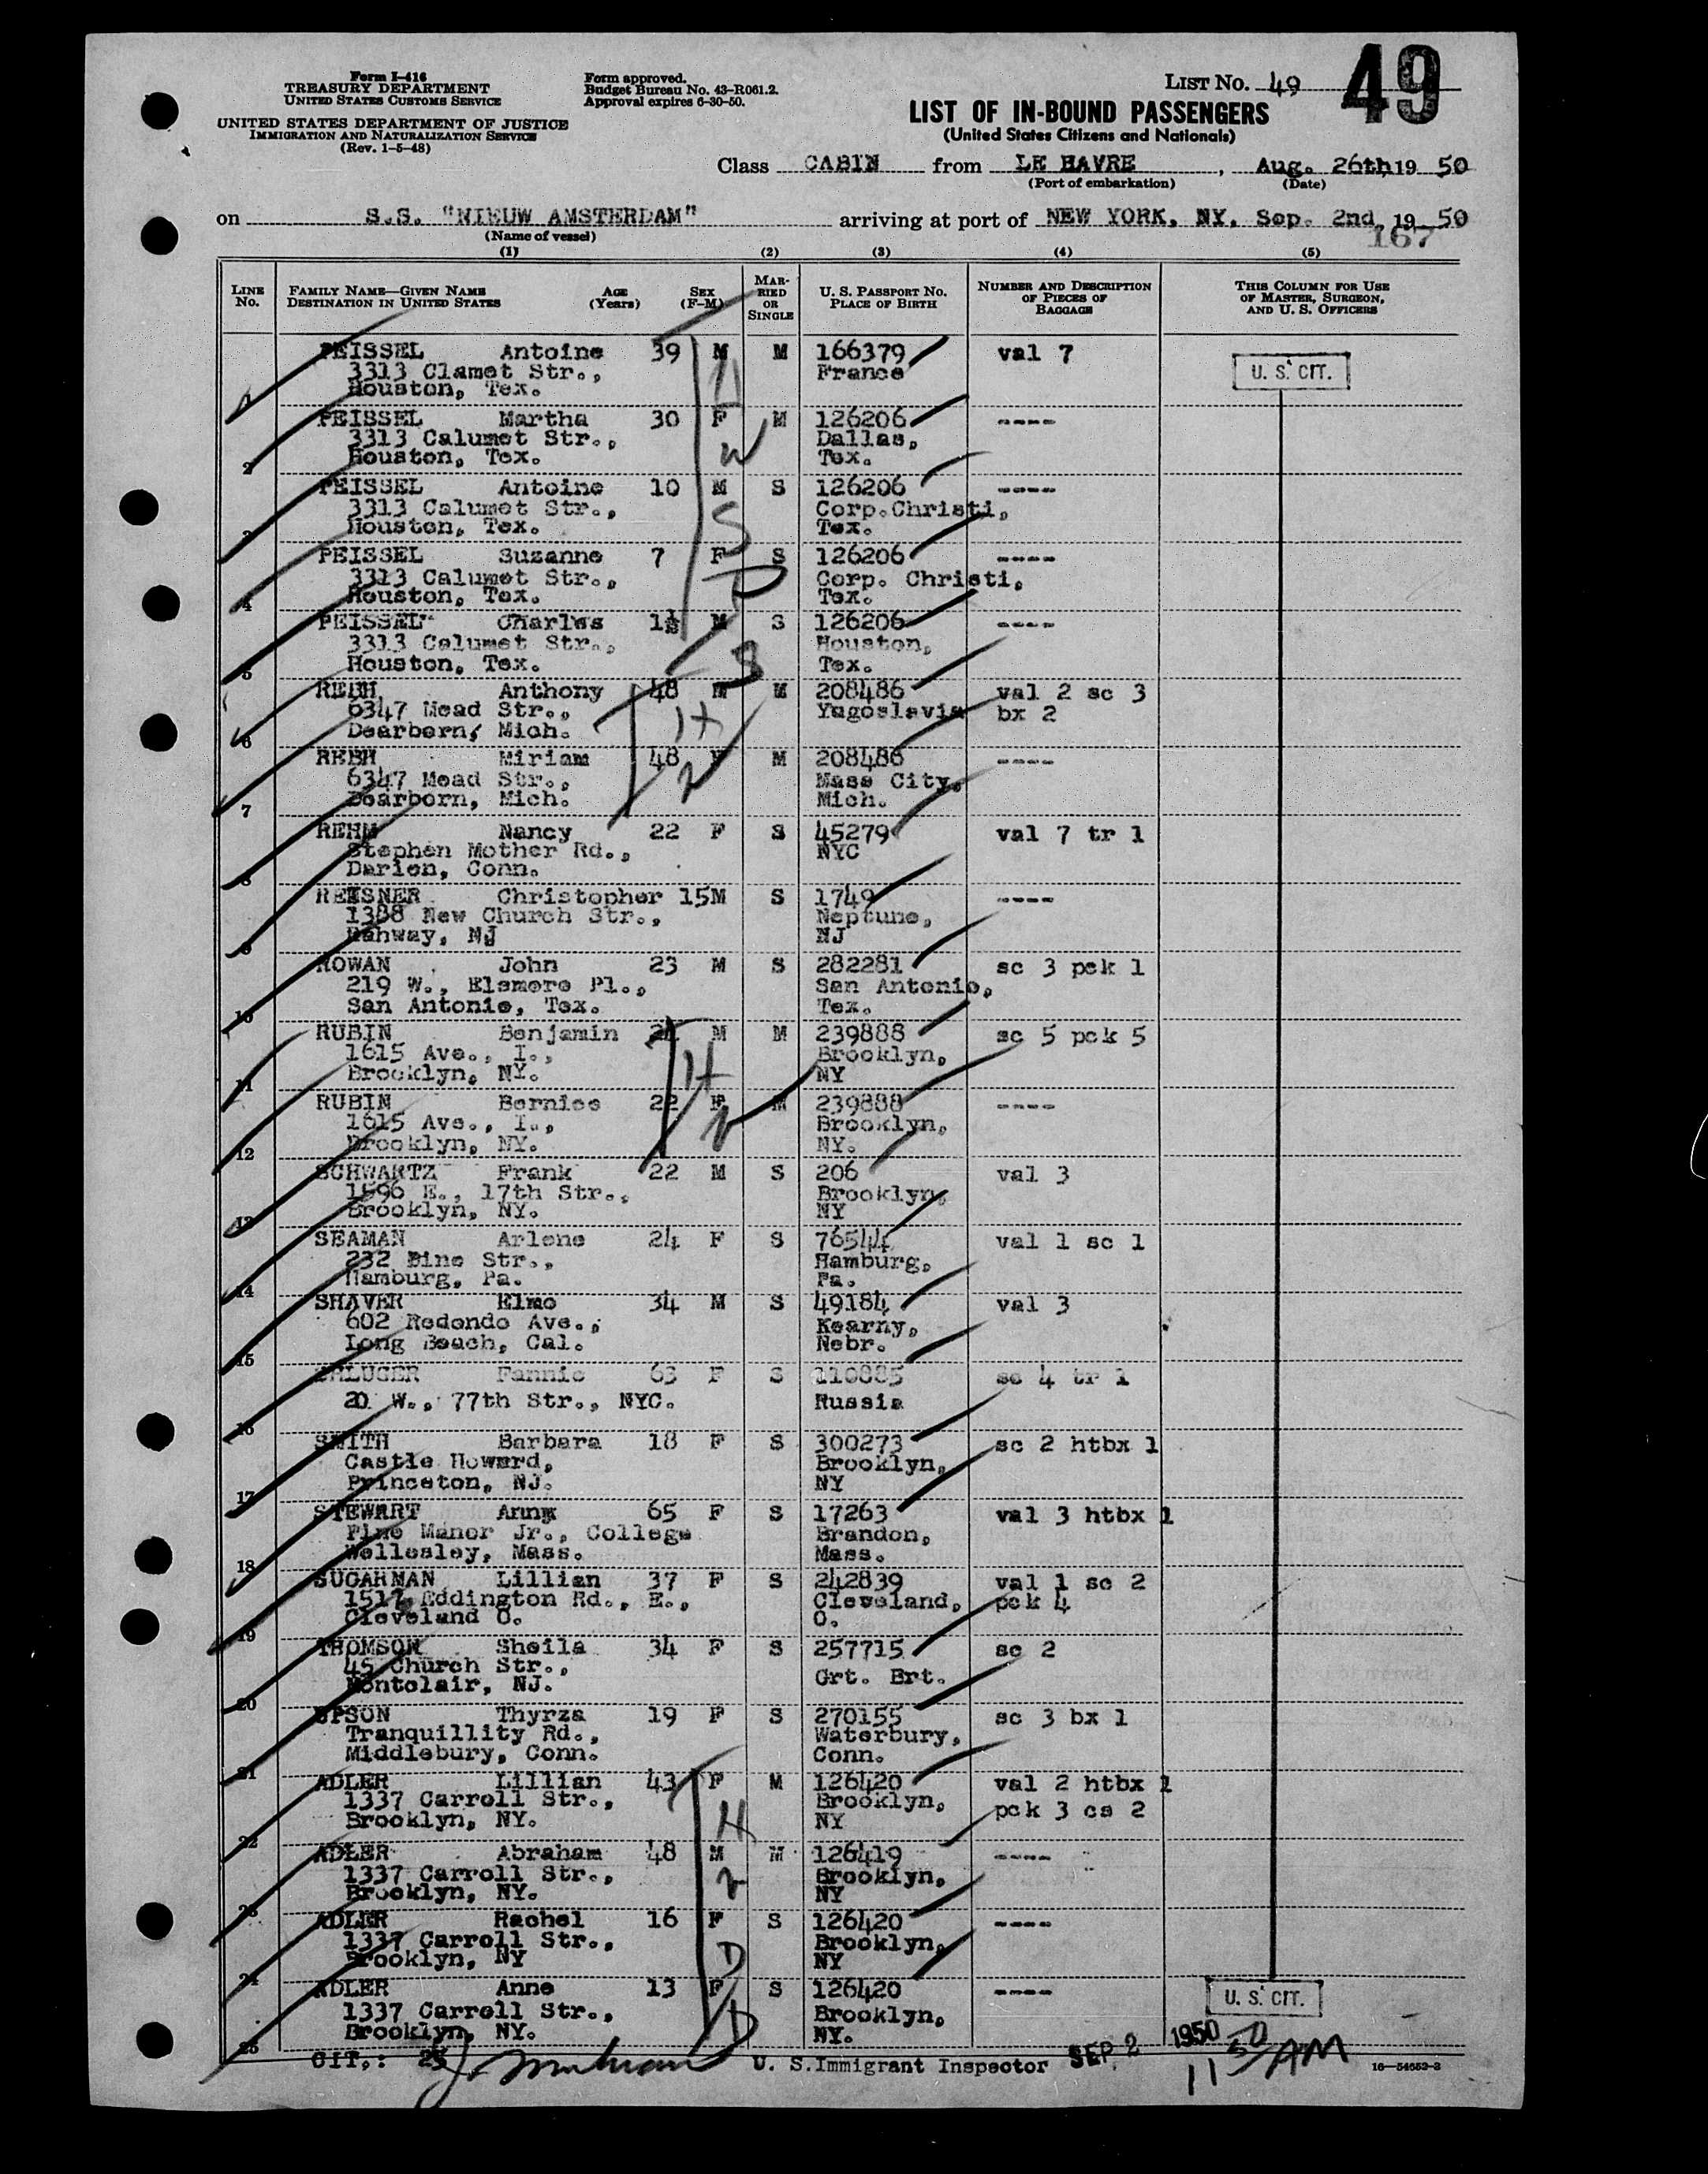 Form I-416
TREASURY DEPARTMENT
UNITED STATES CUSTOMS SERVICE
UNITED STATES DEPARTMENT OF JUSTICE
IMMIGRATION AND NATURALIZATION SERVICE
(Rev. 1-5-48)
Form approved.
Budget Bureau No. 43-R061.2.
Approval expires 6-30-50.
LIST No. 49
49
LIST OF IN-BOUND PASSENGERS
(United States Citizens and Nationals)
Class CABIN from LE HAVRE, Aug. 26th 19 50
(Port of embarkation) (Date)
on S.S. "NIEUW AMSTERDAM" arriving at port of NEW YORK, NY, Sep. 2nd, 19 50
(Name of vessel)
167
(1) (2) (3) (4) (5)
LINE No. FAMILY NAME—GIVEN NAME DESTINATION IN UNITED STATES AGE (Years) SEX (F-M) MARRIED OR SINGLE U. S. PASSPORT NO. PLACE OF BIRTH NUMBER AND DESCRIPTION OF PIECES OF BAGGAGE THIS COLUMN FOR USE OF MASTER, SURGEON, AND U. S. OFFICERS
PEISSEL Antoine 39 M M 166379 val 7 U. S. CIT.
3313 Clamet Str., France
1 Houston, Tex.
PEISSEL Martha 30 F M 126206 ----
3313 Calumet Str., Dallas,
2 Houston, Tex. Tex.
PEISSEL Antoine 10 M S 126206 ----
3313 Calumet Str., Corp.Christi,
3 Houston, Tex. Tex.
PEISSEL Suzanne 7 F S 126206 ----
3313 Calumet Str., Corp. Christi,
4 Houston, Tex. Tex.
PEISSEL Charles M S 126206 ----
3313 Calumet Str., Houston,
5 Houston, Tex. Tex.
REBH Anthony 48 M M 208486 val 2 sc 3
6347 Mead Str., Yugoslavia bx 2
6 Dearborn, Mich.
REBH Miriam 48 F M 208486 ----
6347 Mead Str., Mass City,
7 Dearborn, Mich. Mich.
REHM Nancy 22 F S 45279 val 7 tr 1
Stephen Mother Rd., NYC
8 Darien, Conn.
REISNER Christopher 15M S 1749 ----
1388 New Church Str., Neptune,
9 Rahway, NJ NJ
ROWAN John 23 M S 282281 sc 3 pck 1
219 W., Elsmere Pl., San Antonio,
10 San Antonio, Tex. Tex.
RUBIN Benjamin M M 239888 sc 5 pck 5
1615 Ave., I., Brooklyn,
11 Brooklyn, NY. NY
RUBIN Bernice 22 F M 239888 ----
1615 Ave., I., Brooklyn,
12 Brooklyn, NY. NY.
SCHWARTZ Frank 22 M S 206 val 3
1596 E., 17th Str., Brooklyn,
13 Brooklyn, NY. NY
SEAMAN Arlene 24 F S 76544 val 1 sc 1
232 Pine Str., Hamburg,
14 Hamburg, Pa. Pa.
SHAVER Elmo 34 M S 49184 val 3
602 Redondo Ave., Kearny,
15 Long Beach, Cal. Nebr.
SHLUGER Fannie 63 F S 110885 sc 4 tr 1
20 W., 77th Str., NYC. Russia
16
SMITH Barbara 18 F S 300273 sc 2 htbx 1
Castle Howard, Brooklyn,
17 Princeton, NJ. NY
STEWART Anna 65 F S 17263 val 3 htbx 1
Pine Manor Jr., College Brandon,
18 Wellesley, Mass. Mass.
SUGARMAN Lillian 37 F S 242839 val 1 sc 2
Eddington Rd., E., Cleveland, pck 4
19 Cleveland O. O.
THOMSON Sheila 34 F S 257715 sc 2
45 Church Str., Grt. Brt.
20 Montclair, NJ.
UPSON Thyrza 19 F S 270155 sc 3 bx 1
Tranquillity Rd., Waterbury,
21 Middlebury, Conn. Conn.
ADLER Lillian 43 F M 126420 val 2 htbx 1
1337 Carroll Str., Brooklyn, pck 3 cs 2
22 Brooklyn, NY. NY
ADLER Abraham 48 M M 126419 ----
1337 Carroll Str., Brooklyn,
23 Brooklyn, NY. NY
ADLER Rachel 16 F S 126420 ----
1337 Carroll Str., Brooklyn,
24 Brooklyn, NY NY
ADLER Anne 13 F S 126420 ----
1337 Carroll Str., Brooklyn, U. S. CIT.
25 Brooklyn, NY. NY.
CIT.: 25 U. S.Immigrant Inspector SEP 2 1950
11 50 AM
16—54652-2